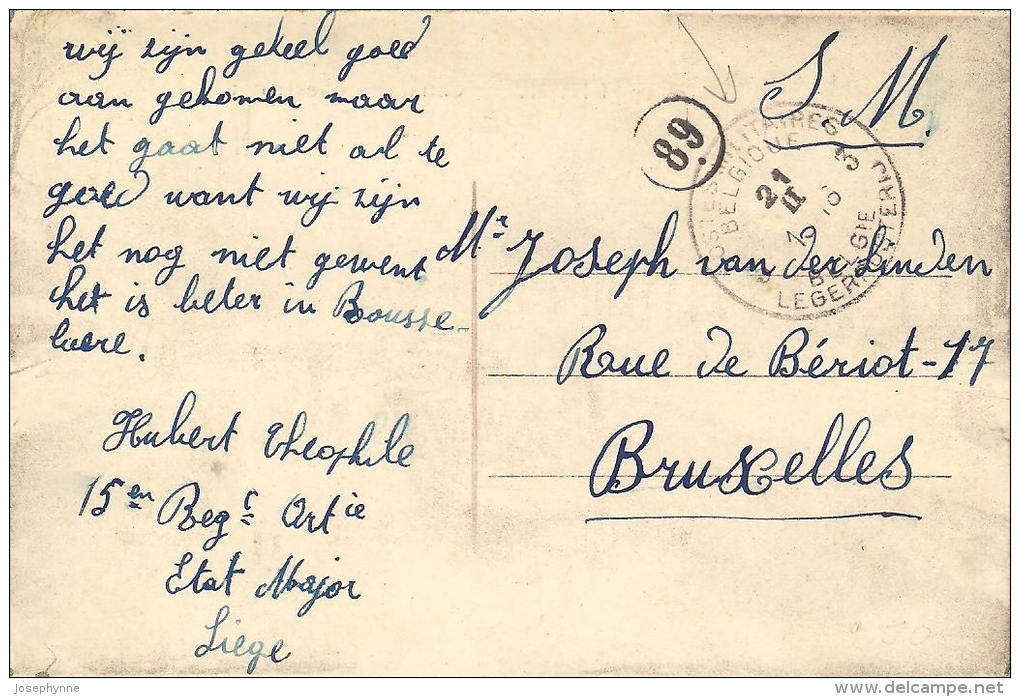 wij zijn geheel goed
aan gekomen maar
het gaat niet al te
goed want wij zijn
het nog niet gewent
het is beter in Bousse-
laere.
Hubert Theophile
15en Regt Artie
Etat Major
Liège
S. M.
89
POSTES MILITAIRES
BELGIQUE
21
II
3
BELGIE
LEGERPOSTERIJ
Mr Joseph van der Linden
Rue de Bériot-17
Bruxelles
josephynne
www.delcampe.net